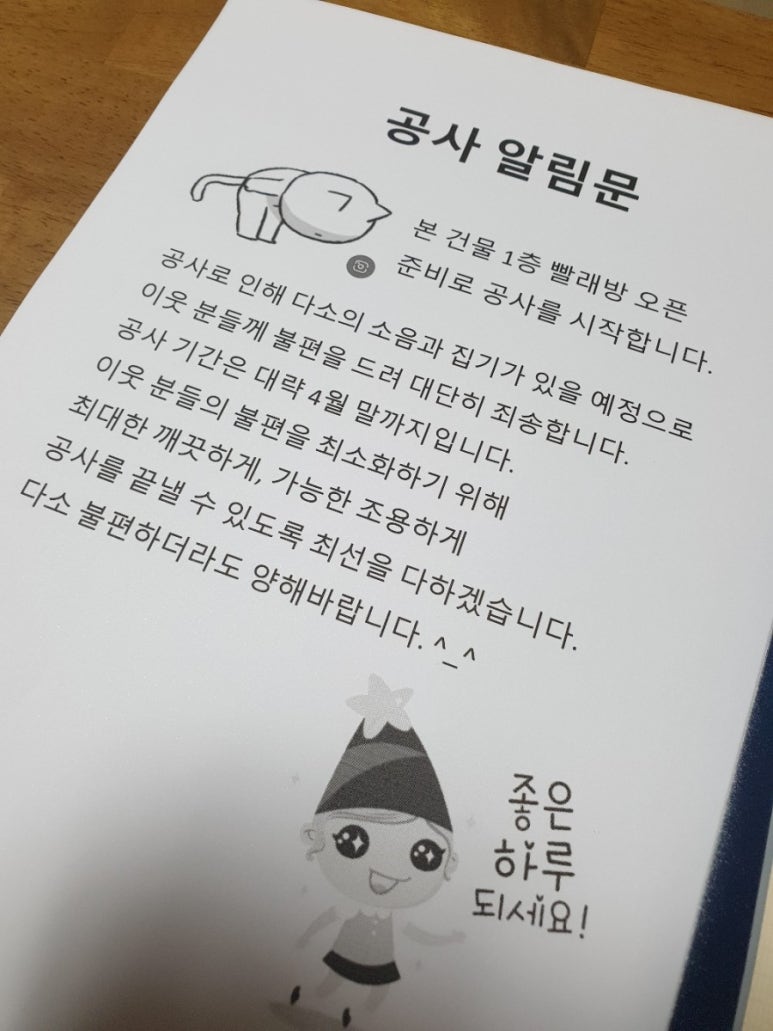 공사 알림문
본 건물 1층 빨래방 오픈
준비로 공사를 시작합니다.
공사로 인해 다소의 소음과 집기가 있을 예정으로
이웃 분들께 불편을 드려 대단히 죄송합니다.
공사 기간은 대략 4월 말까지입니다.
이웃 분들의 불편을 최소화하기 위해
최대한 깨끗하게, 가능한 조용하게
공사를 끝낼 수 있도록 최선을 다하겠습니다.
다소 불편하더라도 양해바랍니다. ^_^
좋은
하루
되세요!